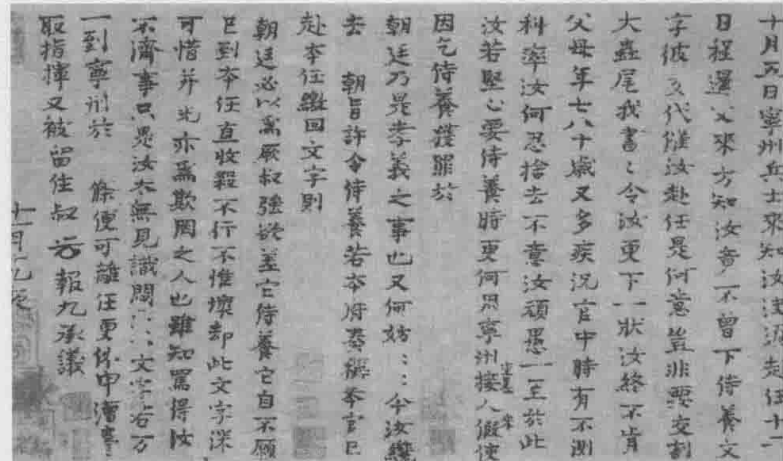 十月五日寧州兵士來知汝已赴任十一
日程遘父來方知汝竟不曾下侍養文
字彼交代催汝赴任是何意豈非要交割
大蟲尾我書〻令汝更下一狀汝終不肯
父母年七八十歲又多疾況官中時有不測
科率汝何忍捨去不意汝頑愚一至於此
汝若堅心要侍養時更何用寧州接人假使
因乞侍養獲罪於
朝廷乃是孝義之事也又何妨：：今汝纔
去 朝旨許令侍養若本府奏稱本官已
赴本任繳回文字則
朝廷必以為厥叔強欲差它侍養它自不願
已到本任直收殺不行不惟壞却此文字深
可惜并光亦為欺罔之人也雖知罵得汝
不濟事只是汝太無見識悶：：文字若万
一到寧州於 條便可離任更休申瀆書
取指揮又被留住叔 光報九承議
十一月九夜